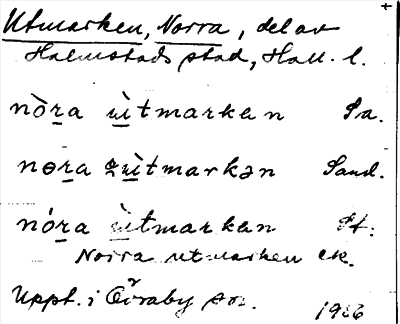 Utmarken, Norra, del av
Halmstads stad, Hall. l.
nòra ùtmarkan Sa.
nɵra ùtmarkən Sand.
nóra ùtmarkan St.
Norra utmarken ek.
Uppt. i Övraby sn. 1936